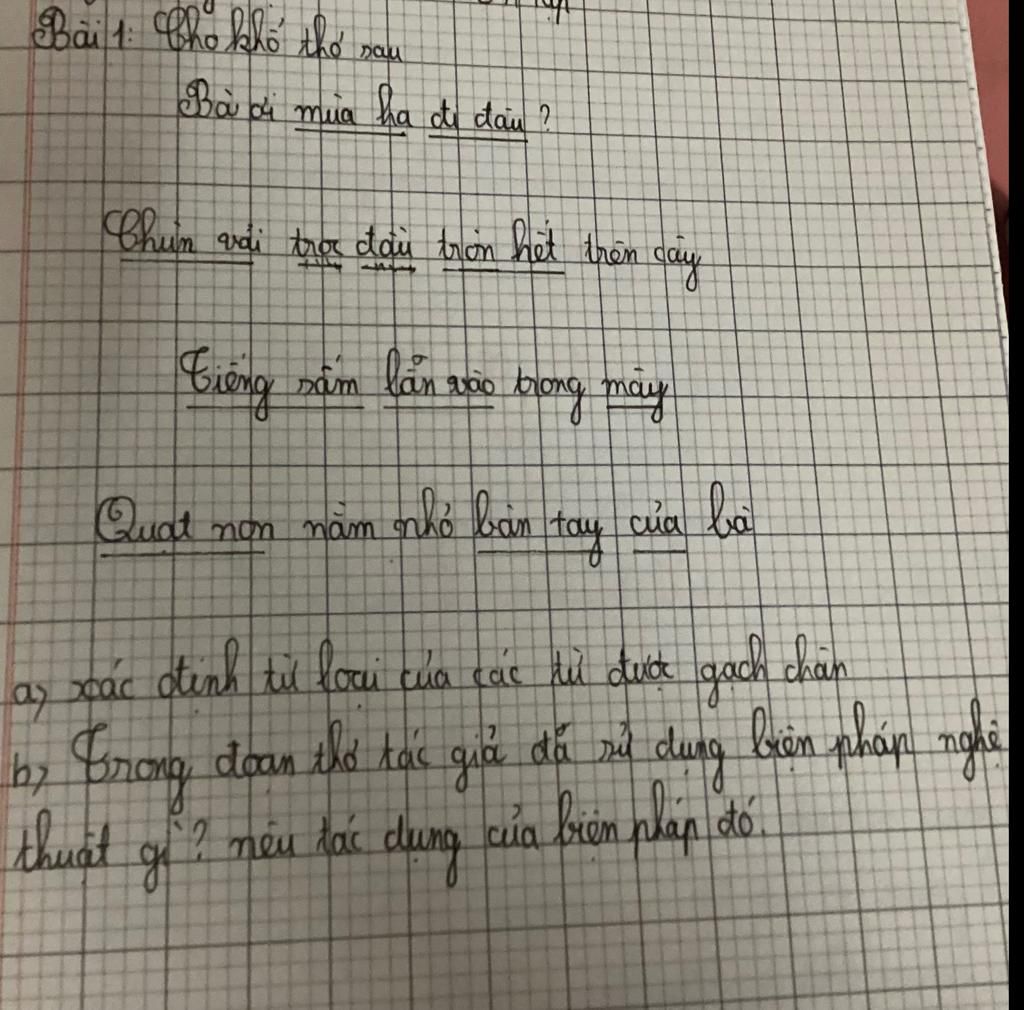 Bài 1: Cho khổ thơ sau
Bà ơi mùa hạ đi đâu?
Chùm vải trọc đầu trốn hết trên cây
Tiếng sấm lẩn vào trong mây
Quạt nan nằm nhớ bàn tay của bà
a) xác định từ loại của các từ được gạch chân
b) Trong đoạn thơ tác giả đã sử dụng biện pháp nghệ
thuật gì? nêu tác dụng của biện pháp đó.